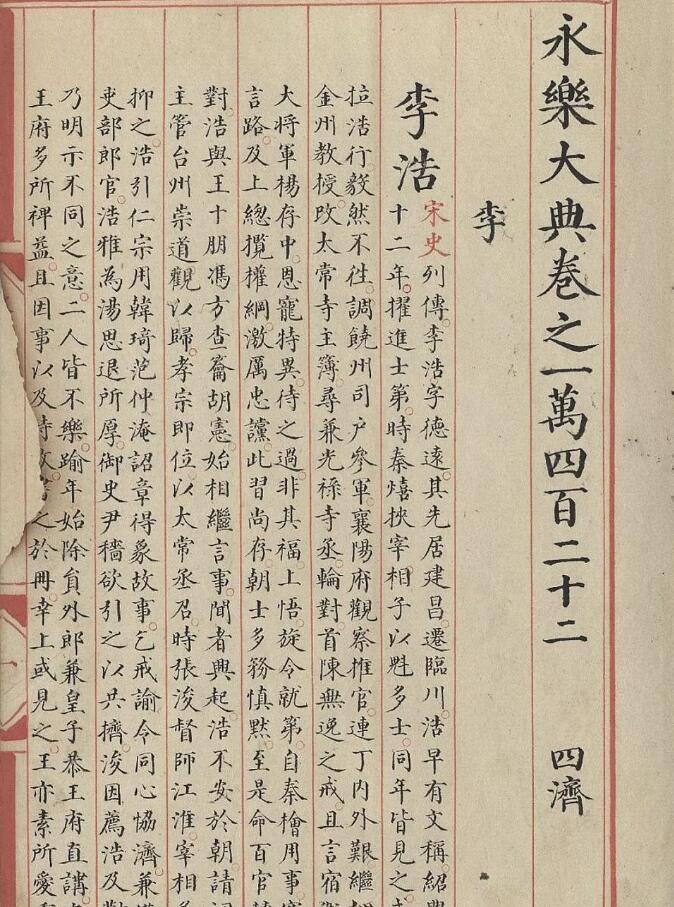 永樂大典卷之一萬四百二十二 四濟
李
李浩
宋史列傳。李浩字德遠。其先居建昌。遷臨川。浩早有文稱。紹興
十二年。擢進士第。時秦熺挾宰相子以魁多士。同年皆見之。
拉浩行。毅然不往。調饒州司户參軍。襄陽府觀察推官。連丁内外艱。繼
金州教授。改太常寺主簿。尋兼光祿寺丞。輪對。首陳無逸之戒。且言宿
大將軍楊存中。恩寵特異。待之過。非其福。上悟。旋令就第。自秦檜用事。
言路。及上總攬權綱。激厲忠讜。此習尚存。朝士多務慎默。至是命百官
對。浩與王十朋馮方查籥胡憲。始相繼言事。聞者興起。浩不安於朝。請
主管台州崇道觀以歸。孝宗即位。以太常丞召。時張浚督師江淮。宰相
抑之。浩引仁宗用韓琦范仲淹。詔章得象故事。乞戒諭令同心協濟。兼
吏部郎官。浩雅為湯思退所厚。御史尹穡欲引之以共擠浚。因薦浩及
乃明示不同之意。二人皆不樂。踰年始除負外郎兼皇子恭王府直講。
王府多所裨益。且因事以及時政。之於冊。幸上或見之。王亦素所愛